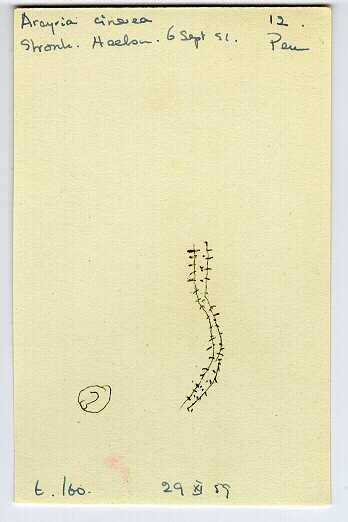 Arcyria cinerea 12.
Stronk. Haelen. 6 Sept 51. Pen
t. 160. 29 XI 59